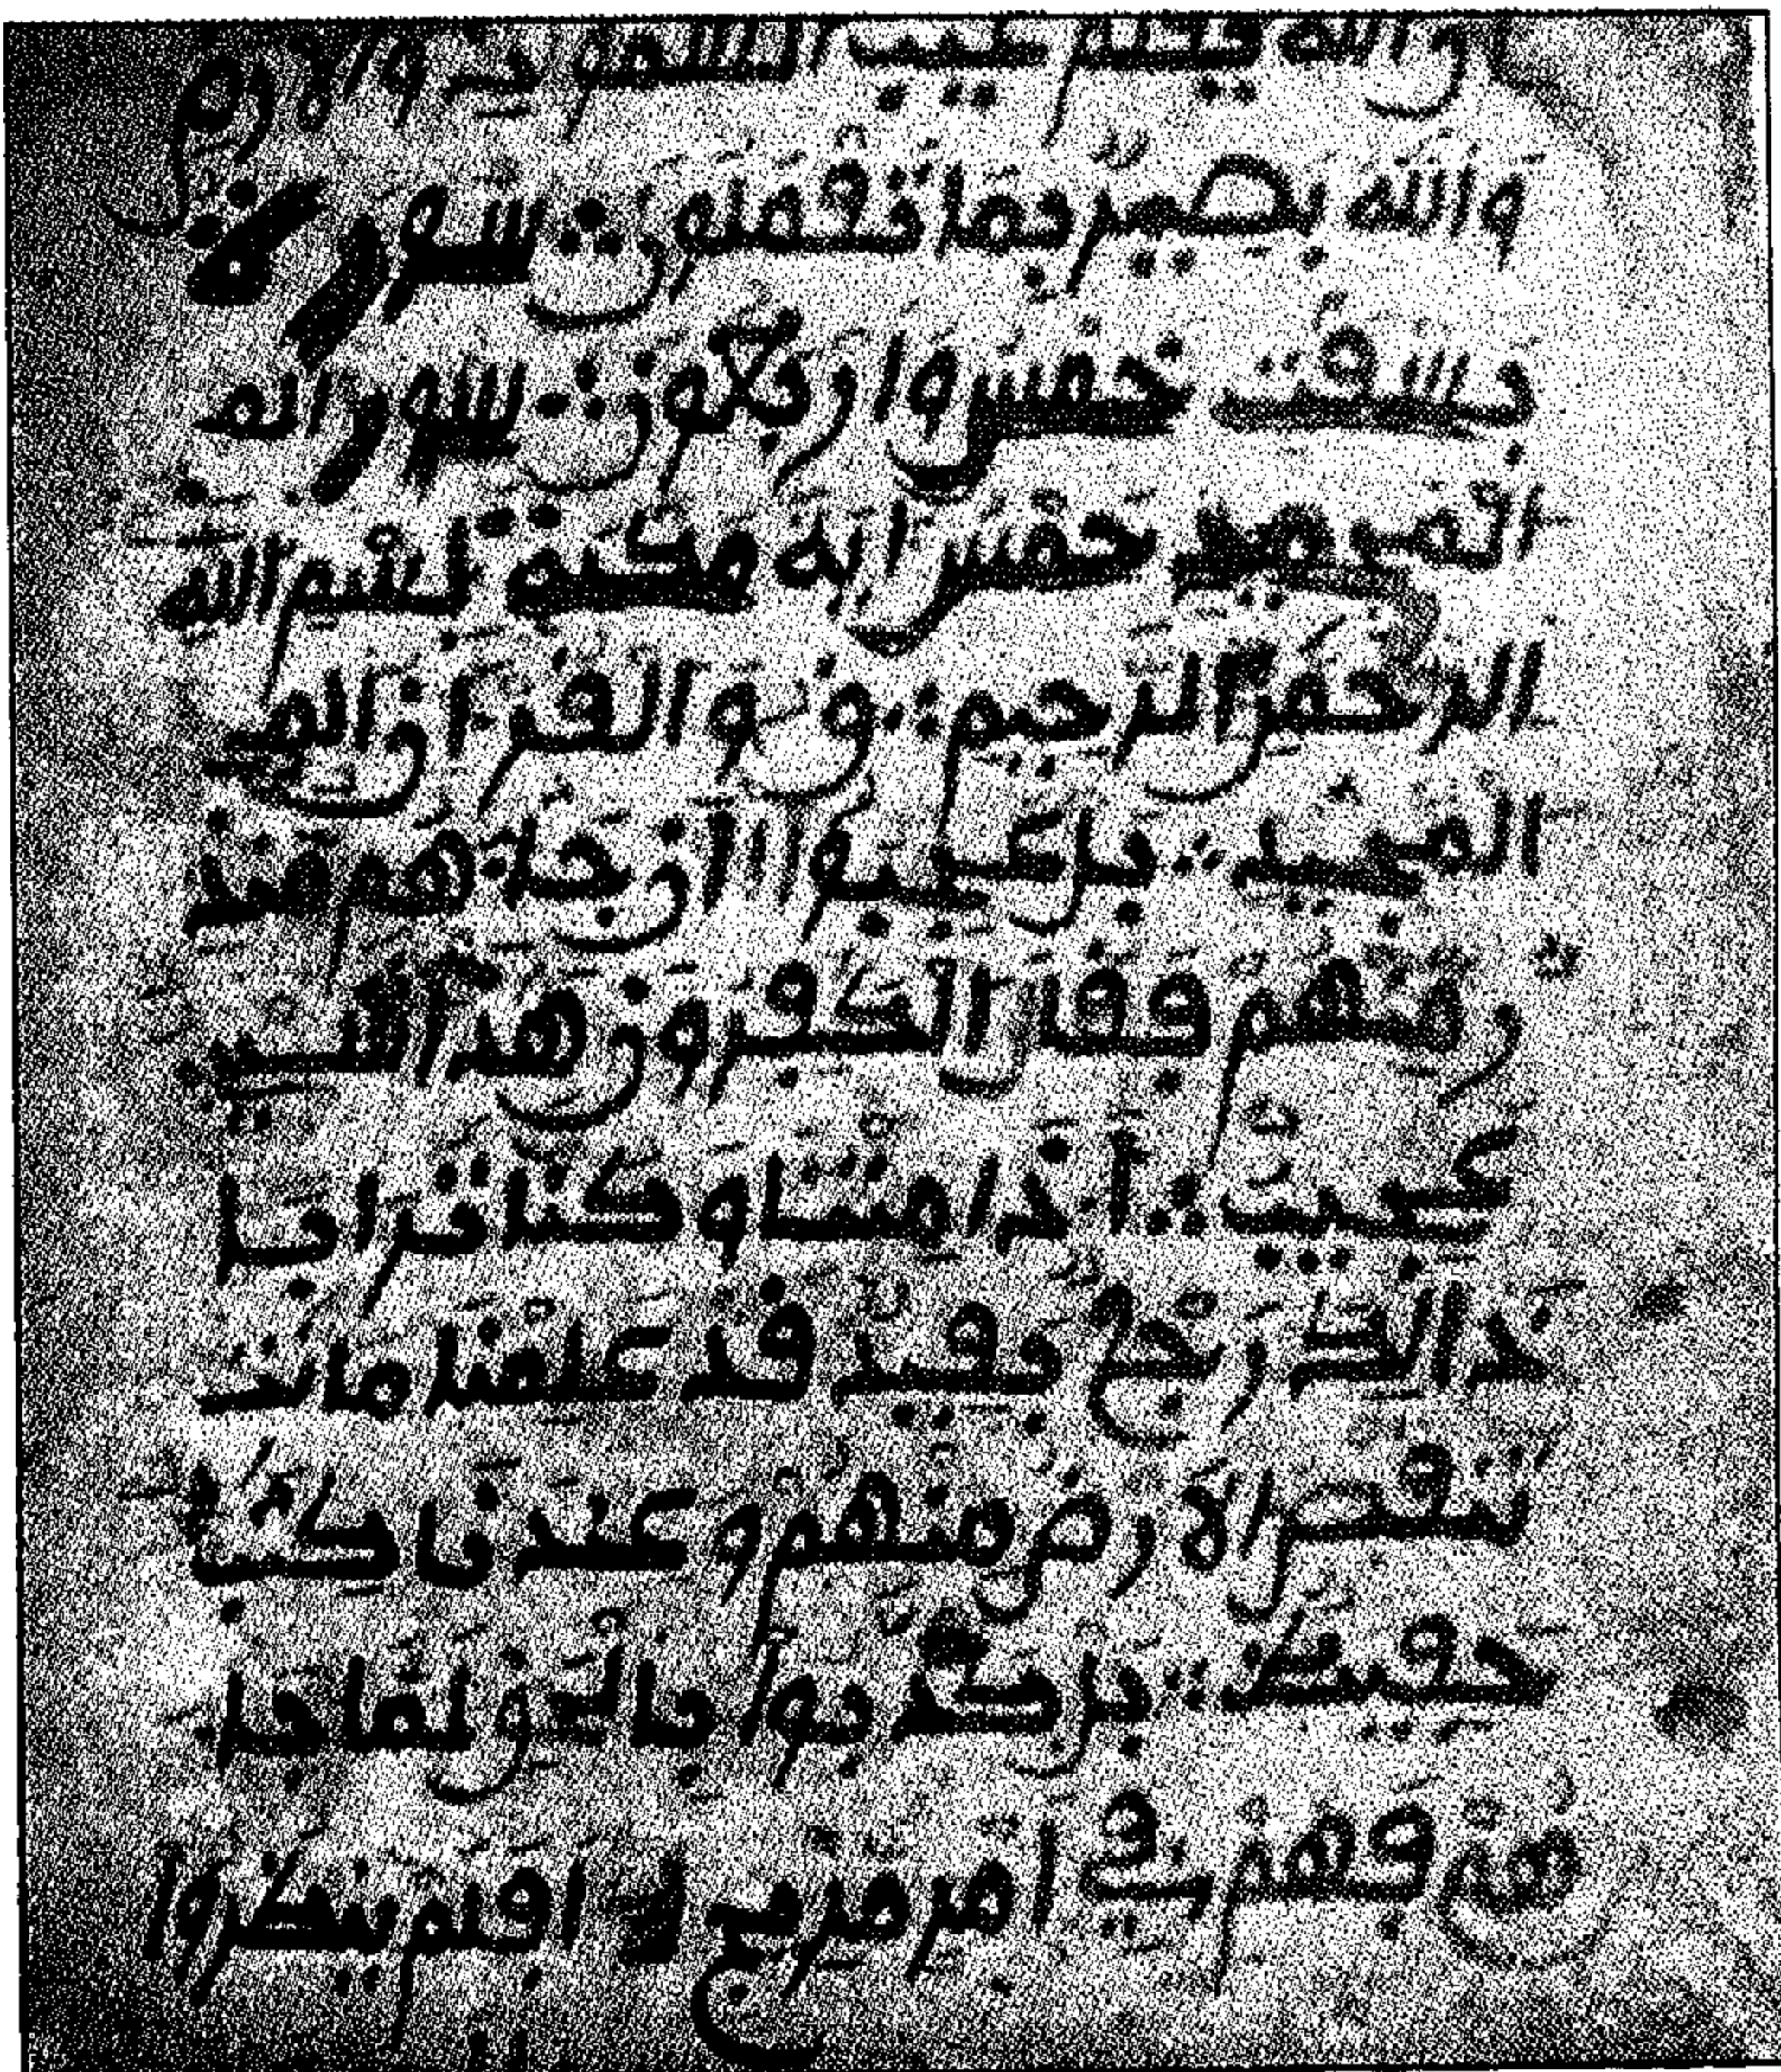 ان الله يعلم غيب السموت والارض
والله بصير بما تعملون ؞ سورة
بسقت خمس واربعون ؞ سور الم
خمس اية مكية بسم الله
الرحمن الرحيم ؞ ق والقران الم
المجيد ؞ بل عجبوا ان جاهم منذ
ر منهم فقال الكفرون هذا شي
عجيب ؞ اذا متنا وكنا ترابا
ذالك رجع بعيد قد علمنا ما تنـ
تنقص الارض منهم وعندنا كتب
حفيظ ؞ بل كذبوا بالحق لما جا
هم فهم في امر مريج افلم ينظروا